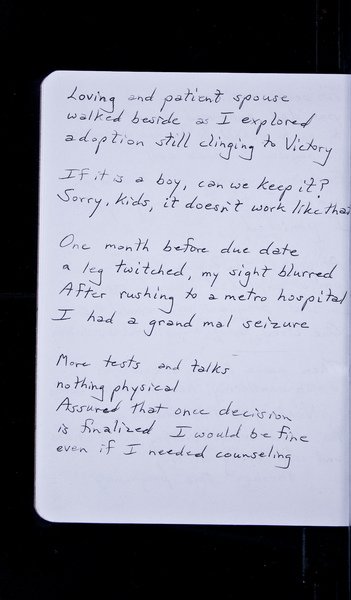 Loving and patient spouse
walked beside as I explored
adoption still clinging to Victory
If it is a boy, can we keep it?
Sorry, kids, it doesn't work like that
One month before due date
a leg twitched, my sight blurred
After rushing to a metro hospital
I had a grand mal seizure
More tests and talks
nothing physical
Assured that once decision
is finalized I would be fine
even if I needed counseling